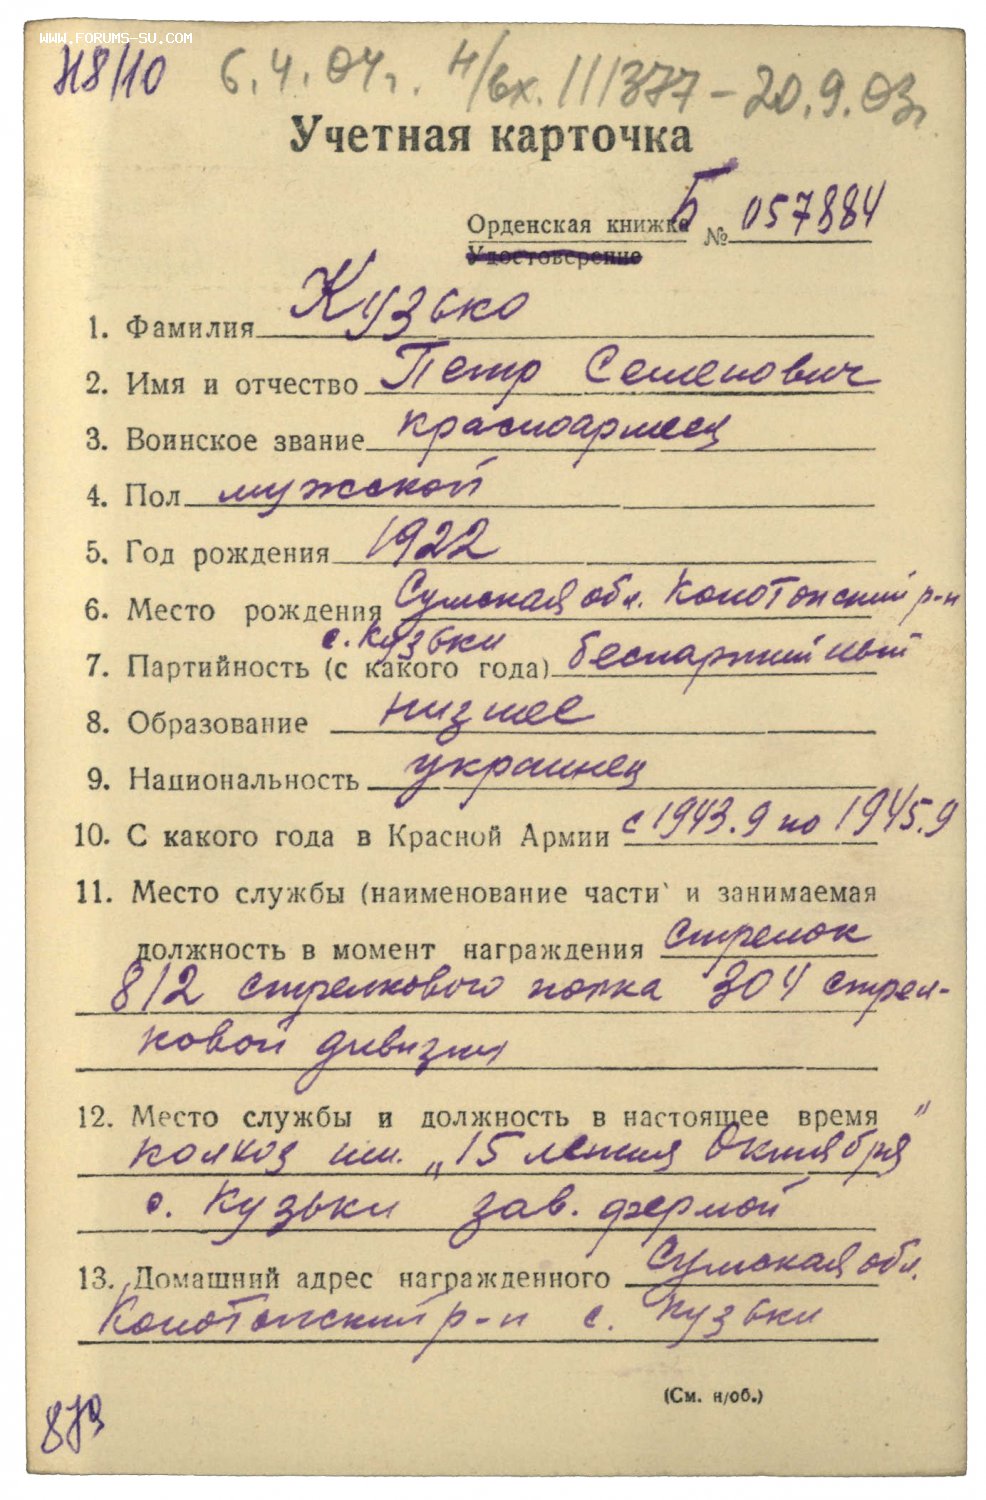 WWW.FORUMS-SU.COM
6.4.04г. н/вх. 111377 – 20.9.03г.
Учетная карточка
Орденская книжка Б № 057884
Удостоверение
1. Фамилия Кузько
2. Имя и отчество Петр Семенович
3. Воинское звание красноармеец
4. Пол мужской
5. Год рождения 1922
6. Место рождения Сумская обл. Конотопский р-н
с. Кузьки
7. Партийность (с какого года) беспартийный
8. Образование низшее
9. Национальность украинец
10. С какого года в Красной Армии с 1943.9 по 1945.9
11. Место службы (наименование части и занимаемая
должность в момент награждения стрелок
812 стрелкового полка 304 стрел-
ковой дивизии
12. Место службы и должность в настоящее время
колхоз им. „15 летия Октября"
с. Кузьки зав. фермой
13. Домашний адрес награжденного Сумская обл.
Конотопский р-н с. Кузьки
(См. н/об.)